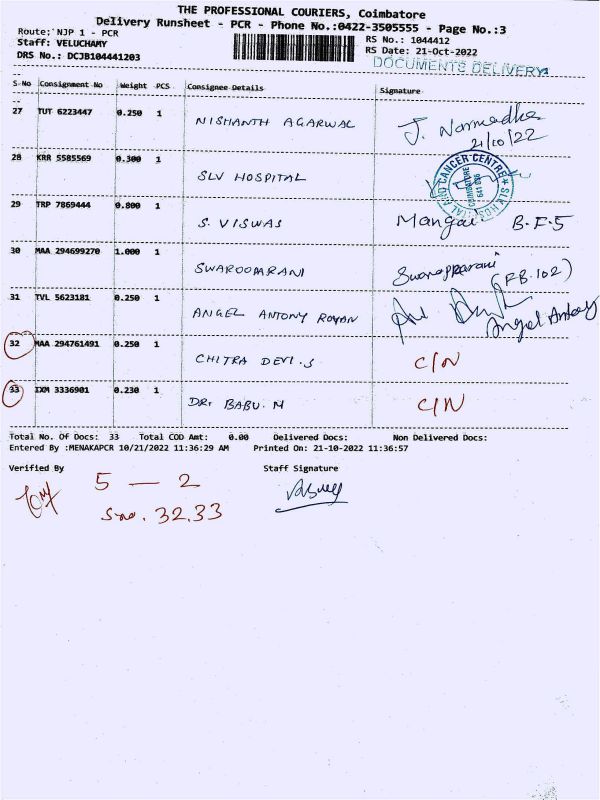 THE PROFESSIONAL COURIERS, Coimbatore
Delivery Runsheet - PCR - Phone No.:0422-3505555 - Page No.:3
Route: NJP 1 - PCR
RS No.: 1044412
Staff: VELUCHAMY
RS Date: 21-Oct-2022
DRS No.: DCJB104441203
DOCUMENTS DELIVERY
S No Consignment No Weight PCS Consignee Details Signature
27 TUT 6223447 0.250 1 NISHANTH AGARWAL J. Narmadha
21/10/22
28 KRR 5585569 0.300 1 SLV HOSPITAL
AND CANCER CENTRE ★ SLV HOS
COIMBATORE
29 TRP 7869444 0.800 1 S. VISWAS Mangai B.F.5
30 MAA 294699270 1.000 1 SWAROOPARANI (FB.102)
31 TVL 5623181 0.250 1 ANGEL ANTONY ROYAN Angel Antony
32 MAA 294761491 0.250 1 CHITRA DEVI.S C/N
33 IXM 3336901 0.230 1 DR. BABU.M C/N
Total No. Of Docs: 33 Total COD Amt: 0.00 Delivered Docs: Non Delivered Docs:
Entered By :MENAKAPCR 10/21/2022 11:36:29 AM Printed On: 21-10-2022 11:36:57
Verified By Staff Signature
5 — 2
Sno. 32,33